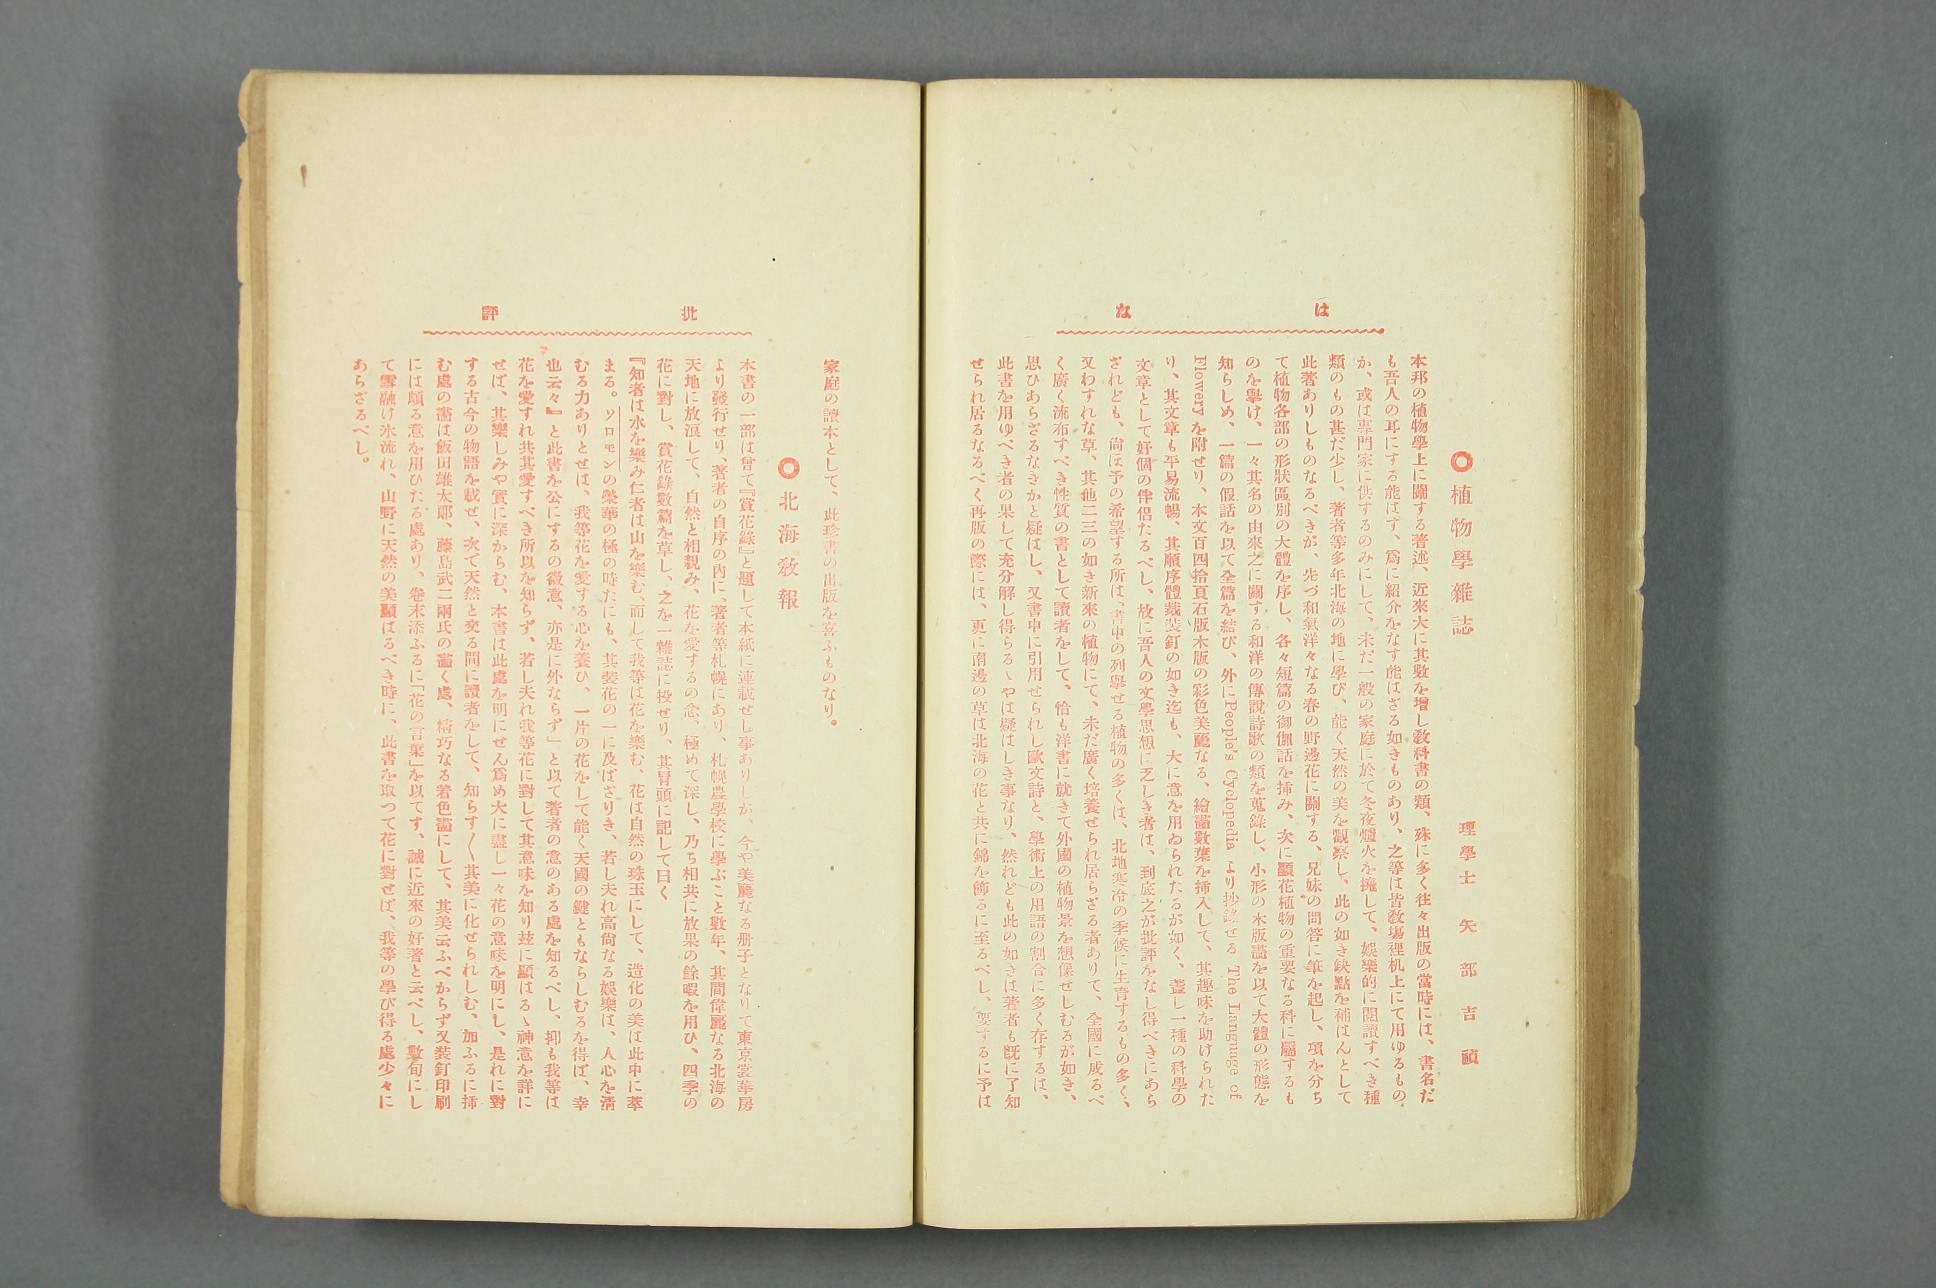 はな
◎植物學雜誌
理學士 矢部吉禎
本邦の植物學上に關する著述、近來大に其數を增し敎科書の類、殊に多く往々出版の當時には、書名だ
も吾人の耳にする能はす、爲に紹介をなす能はざる如きものあり、之等は皆敎塲裡机上にて用ゆるもの
か、或は專門家に供するのみにして、未だ一般の家庭に於て冬夜爐火を擁して、娛樂的に閱讀すべき種
類のもの甚だ少し、著者等多年北海の地に學び、能く天然の美を觀察し、此の如き缺點を補はんとして
此著ありしものなるべきが、先づ和氣洋々なる春の野邊花に關する、兄妹の問答に筆を起し、項を分ち
て植物各部の形狀區別の大體を序し、各々短篇の御伽話を揷み、次に顯花植物の重要なる科に屬するも
のを擧け、一々其名の由來之に關する和洋の傳說詩歌の類を蒐錄し、小形の木版畵を以て大體の形態を
知らしめ、一篇の假話を以て全篇を結び、外にPeople's Cyclopedia より抄錄せる The Language of
Flowery を附せり、本文百四拾頁石版木版の彩色美麗なる、繪畵數葉を揷入して、其趣味を助けられた
り、其文章も平易流暢、其順序體裁裝釘の如き迄も、大に意を用ゐられたるが如く、蓋し一種の科學の
文章として好個の伴侶たるべし、故に吾人の文學思想に乏しき者は、到底之が批評をなし得べきにあら
ざれども、尙ほ予の希望する所は、書中の列擧せる植物の多くは、北地寒冷の季候に生育するもの多く、
又わすれな草、其他二三の如き新來の植物にて、未だ廣く培養せられ居らざる者ありて、全國に成るべ
く廣く流布すべき性質の書として讀者をして、恰も洋書に就きて外國の植物景を想像せしむるが如き、
思ひあらざるなきかと疑はし、又書中に引用せられし歐文詩と、學術上の用語の割合に多く存するは、
此書を用ゆべき者の果して充分解し得らるゝやは疑はしき事なり、然れども此の如きは著者も既に了知
せられ居るなるべく再版の際には、更に南邊の草は北海の花と共に錦を飾るに至るべし、要するに予は
批評
家庭の讀本として、此珍書の出版を喜ふものなり。
◎北海敎報
本書の一部は曾て『賞花錄』と題して本紙に連載せし事ありしが、今や美麗なる册子となりて東京裳華房
より發行せり、著者の自序の內に、著者等札幌にあり、札幌農學校に學ぶこと數年、其間偉麗なる北海の
天地に放浪して、自然と相親み、花を愛するの念、極めて深し、乃ち相共に放果の餘暇を用ひ、四季の
花に對し、賞花錄數篇を草し、之を一雜誌に投せり、其冒頭に記して曰く
『知者は水を樂み仁者は山を樂む、而して我等は花を樂む、花は自然の珠玉にして、造化の美は此中に萃
まる。ソロモンの榮華の極の時だにも、其裝花の一に及ばざりき、若し夫れ高尙なる娛樂は、人心を淸
むる力ありとせは、我等花を愛する心を養ひ、一片の花をして能く天國の鍵ともならしむろを得ば、幸
也云々』と此書を公にするの微意、亦是に外ならず」と以て著者の意のある處を知るべし、抑も我等は
花を愛すれ共其愛すべき所以を知らず、若し夫れ我等花に對して其意味を知り玆に顯はるゝ神意を詳に
せば、其樂しみや實に深からむ、本書は此處を明にせん爲め大に盡し一々花の意味を明にし、是れに對
する古今の物語を載せ、次て天然と交る間に讀者をして、知らす〱其美に化せられしむ、加ふるに揷
む處の畵は飯田雄太郞、藤島武二兩氏の畵く處、精巧なる着色畵にして、其美云ふべからず又裝釘印刷
には頗る意を用ひたる處あり、卷末添ふるに「花の言葉」を以てす、誠に近來の好著と云べし、數旬にし
て雪融け氷流れ、山野に天然の美顯はるべき時に、此書を取つて花に對せば、我等の學び得る處少々に
あらざるべし。